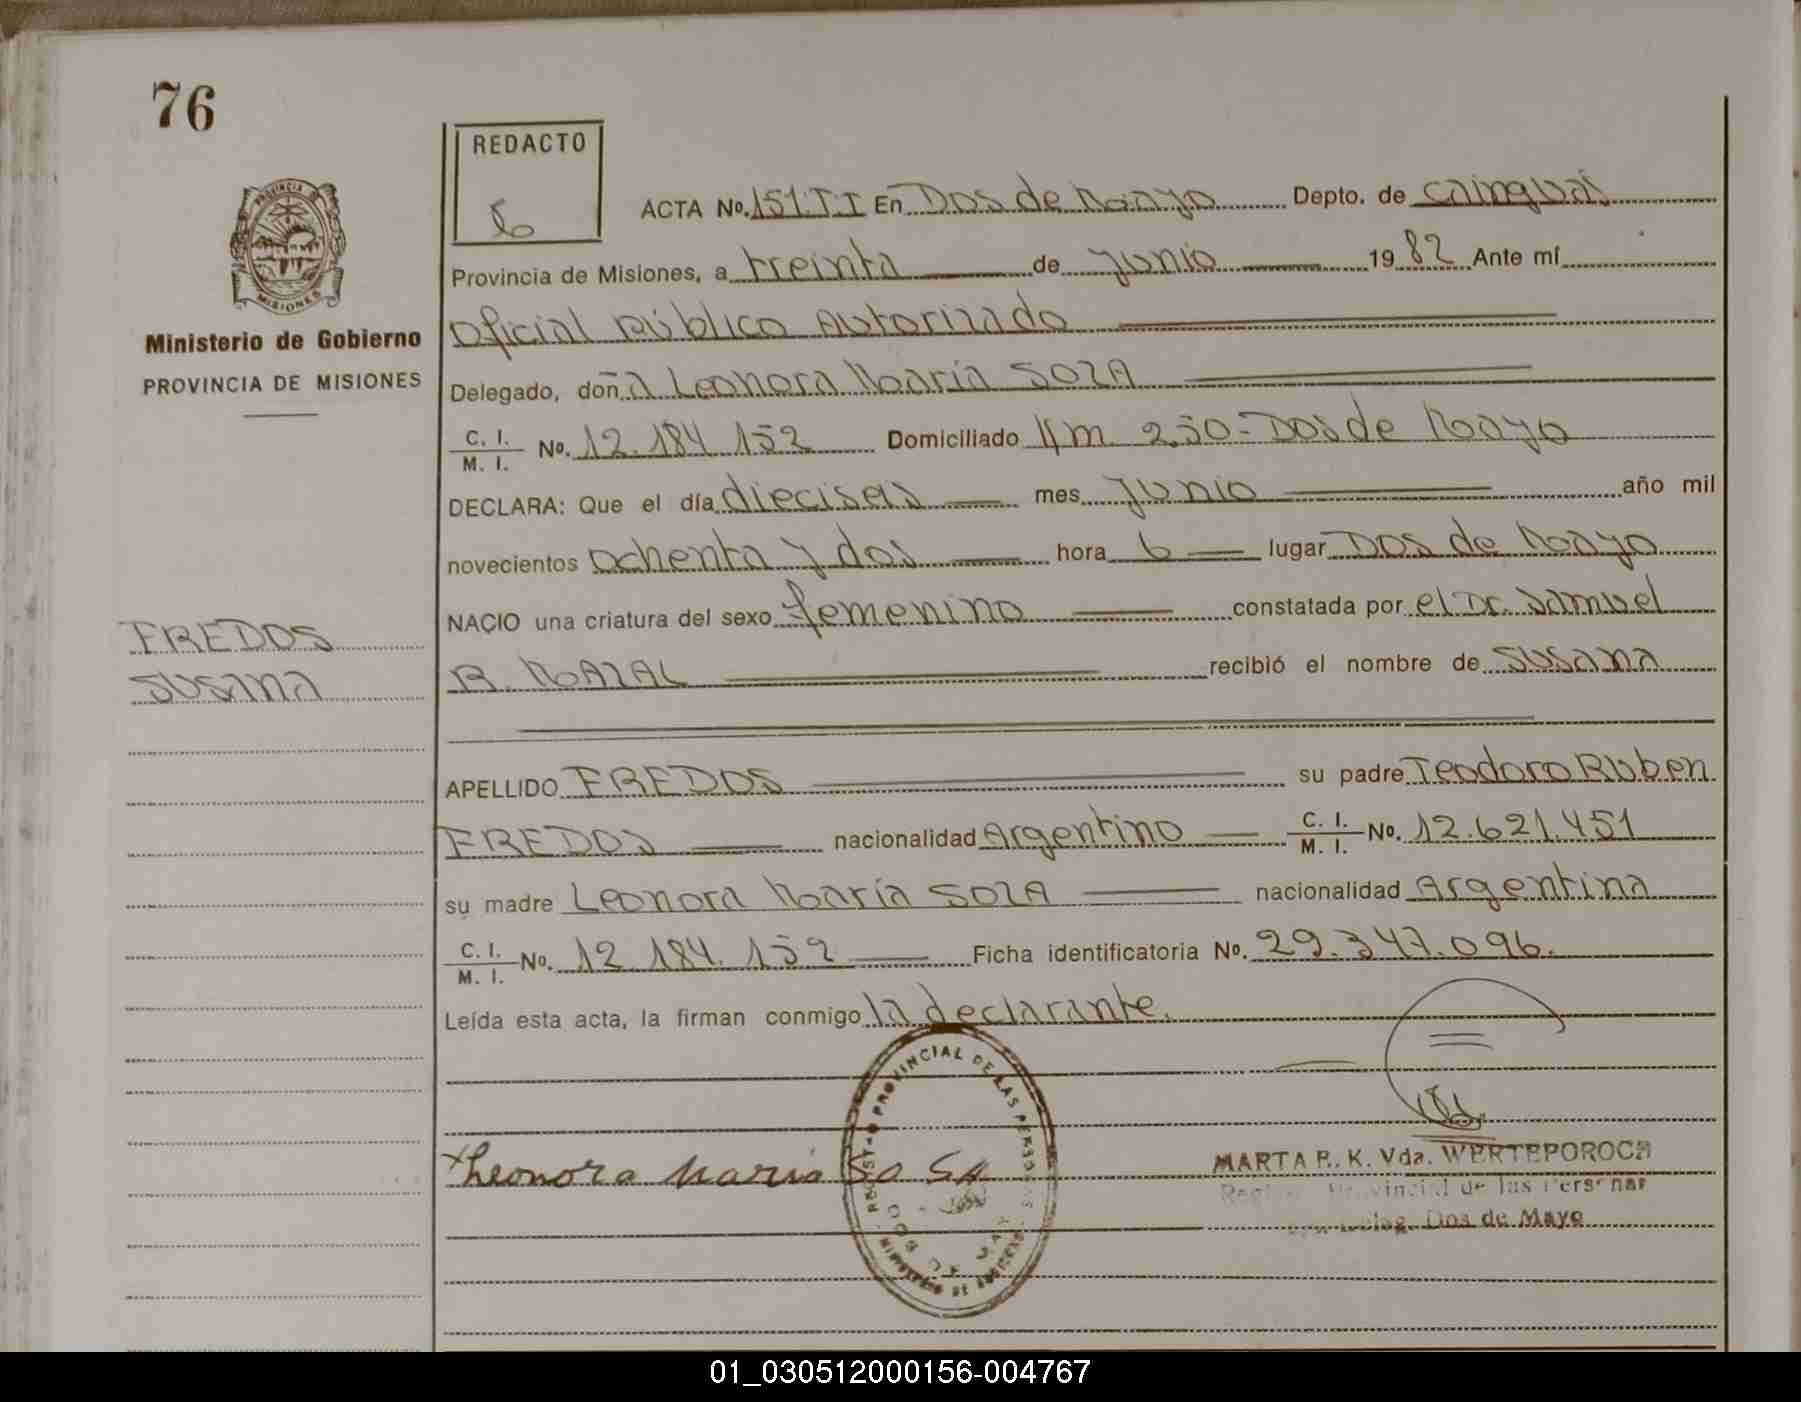 76
REDACTO
ACTA No. 151.T.I En Dos de Mayo Depto. de Cainguás
Provincia de Misiones, a treinta de junio 1982 Ante mí
Oficial Público Autorizado
Ministerio de Gobierno
PROVINCIA DE MISIONES
Delegado, doña Leonora María SOZA
C. I. M. I. No. 12.184.152 Domiciliado Km 250-Dos de Mayo
DECLARA: Que el día dieciseis mes junio año mil
novecientos ochenta y dos hora 6 lugar Dos de Mayo
NACIO una criatura del sexo femenino constatada por el Dr. Samuel
R. MAZAL recibió el nombre de SUSANA
FREDOS
SUSANA
APELLIDO FREDOS su padre Teodoro Ruben
FREDOS nacionalidad Argentino C. I. M. I. No. 12.621.451
su madre Leonora María SOZA nacionalidad Argentina
C. I. M. I. No. 12.184.152 Ficha identificatoria No. 29.347.096.
Leída esta acta, la firman conmigo la declarante.
PROVINCIAL DE LAS PERSONAS
x Leonora Maria So Sa
MARTA R. K. Vda. WERTEPOROCH
Provincial de las Personas
Deleg. Dos de Mayo
01_030512000156-004767